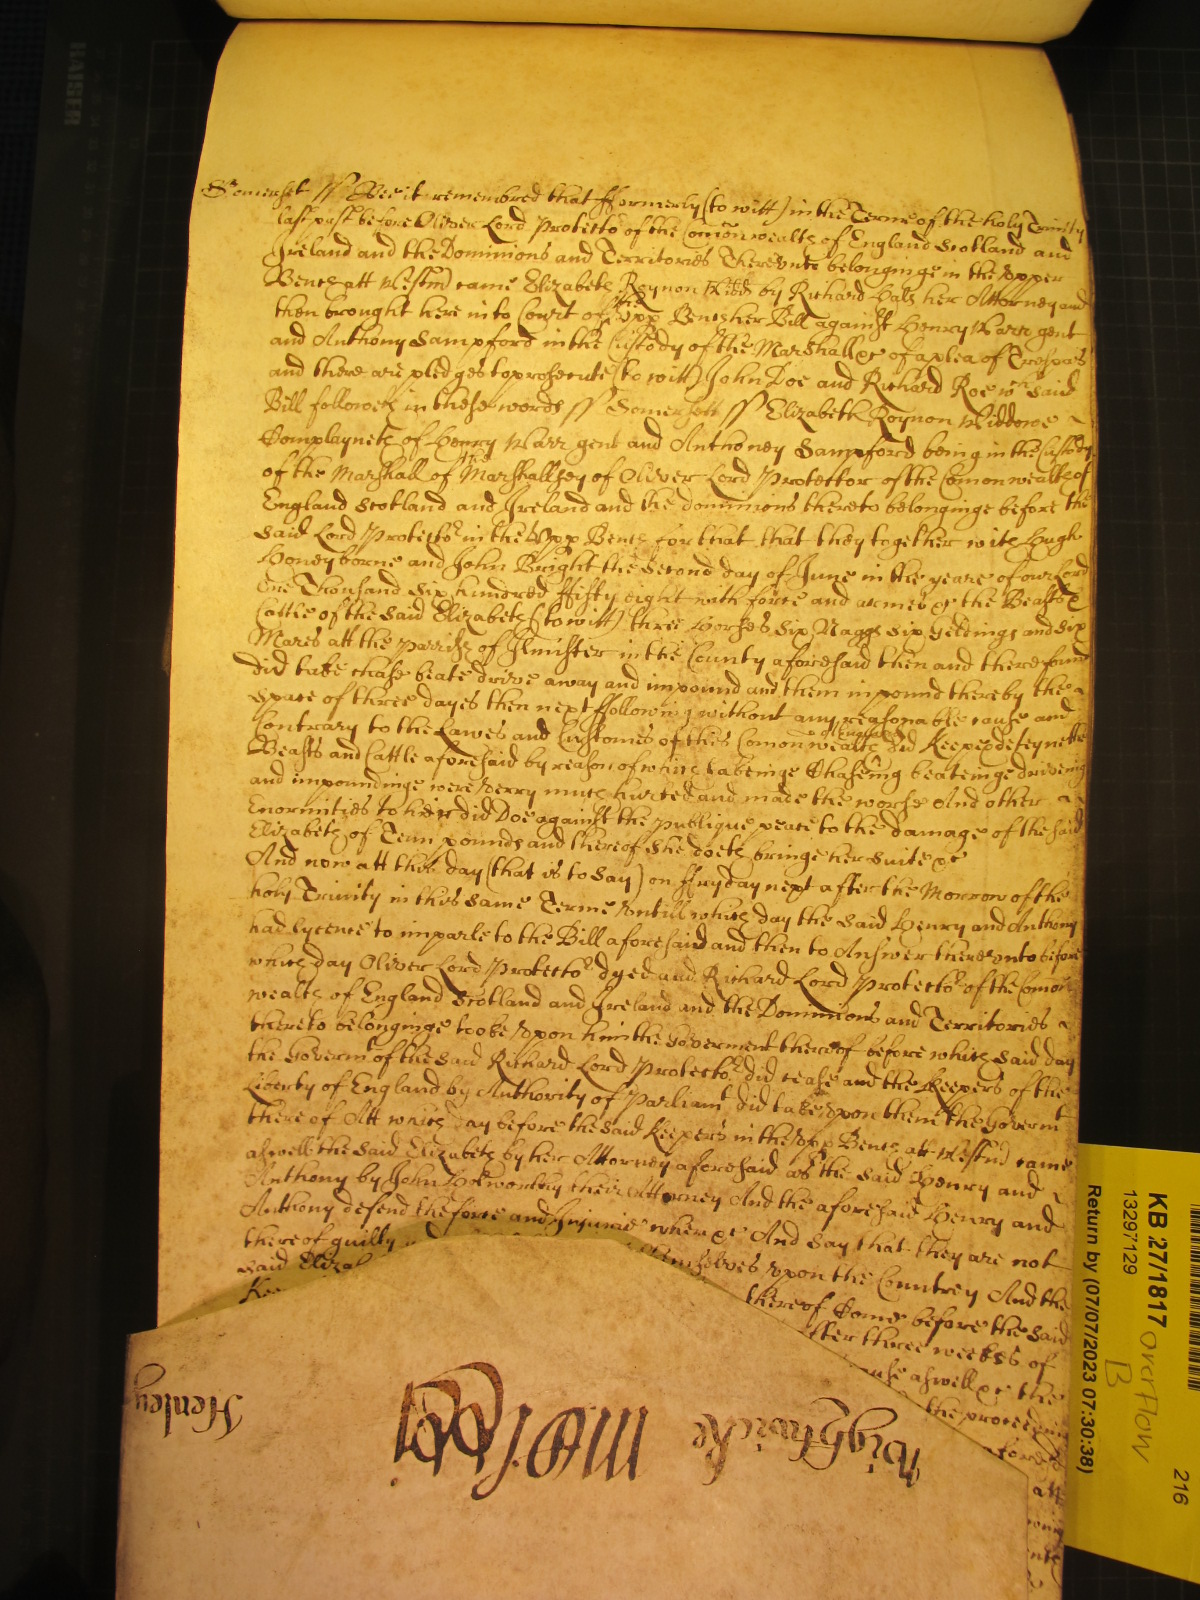 Somerset ss Bee it remembred that fformerly (to witt) in the Terme of the holy Trinity
last past before Oliver Lord Protector of the Comonwealth of England Scotland and
Ireland and the Dominions and Territories Therevnto belonginge in the vpper
Bench att Westmr came Elizabeth Roynon Widd by Richard Hals her Attorney and
then brought here into Court of the vpp Bench her Bill against Henry Warr gent
and Anthony Sampford in the Custody of the Marshall &c of a plea of Trespas
and there are pledges to prosecute (to witt) John Doe and Richard Roe wch said
Bill followeth in these words ss Somersett ss Elizabeth Roynon Widdowe
Complayneth of Henry Warr gent and Anthoney Sampford being in the Custody
of the Marshall of the Marshallsey of Oliver Lord Protector of the Comonwealth of
England Scotland and Ireland and the dominions thereto belonginge before the
said Lord Protector in the vpp Bench for that that they together with Hugh
Honeyborne and John Bright the second day of June in the yeare of our Lord
One Thousand six hundred ffifty eight with force and armes &c the Beasts &
Cattle of the said Elizabeth (to witt) three Horses six Naggs six geldings and six
Mares att the parrish of Ilmister in the County aforesaid then and there found
did take chase beate drive away and impound and them in pound thereby the
space of three dayes then next ffollowing without any reasonable cause and
Contrary to the Lawes and Customes of this Comonwealth of England did Keepe deteyne the
Beasts and Cattle aforesaid by reason of which takeinge Chaseing beateinge driveing
and impoundinge were verry much hurted and made the worse And other
Enormities to her did Doe against the publique peace to the damage of the said
Elizabeth of Tenn pounds and thereof she doeth bringe her suite &c
And now att this day (that is to say) on ffryday next after the Morrow of the
holy Trinity in this same Terme vntill which day the said Henry and Anthony
had lycence to imparle to the Bill aforesaid and then to Answer therevnto before
which day Oliver Lord Protector dyed and Richard Lord Protector of the Comon
wealth of England Scotland and Ireland and the Dominions and Territories
thereto belonginge tooke vpon him the Goverment thereof before which said day
the Governmt of the said Richard Lord Protector did cease and the Keepers of the
Liberty of England by Authority of Parliamt did take vpon them the Governmt
there of Att which day before the said Keepers in the vpp Bench att Westmr came
aswell the said Elizabeth by her Attorney aforesaid as the said Henry and
Anthony by John Holworthy their Attorney And the aforesaid Henry and
Anthony defend the force and Injurie when &c And say that they are not
thereof guilty themselves vpon the Countrey And the
said Elizab thereof Come before the said
Kee after three weekes of
cause aswell &c the
the proceeding
afores
att
Henley
Wightwicke
KAISER
KB 27/1817
13297129
Return by (07/07/2023 07:30:38)
overflow
B
216